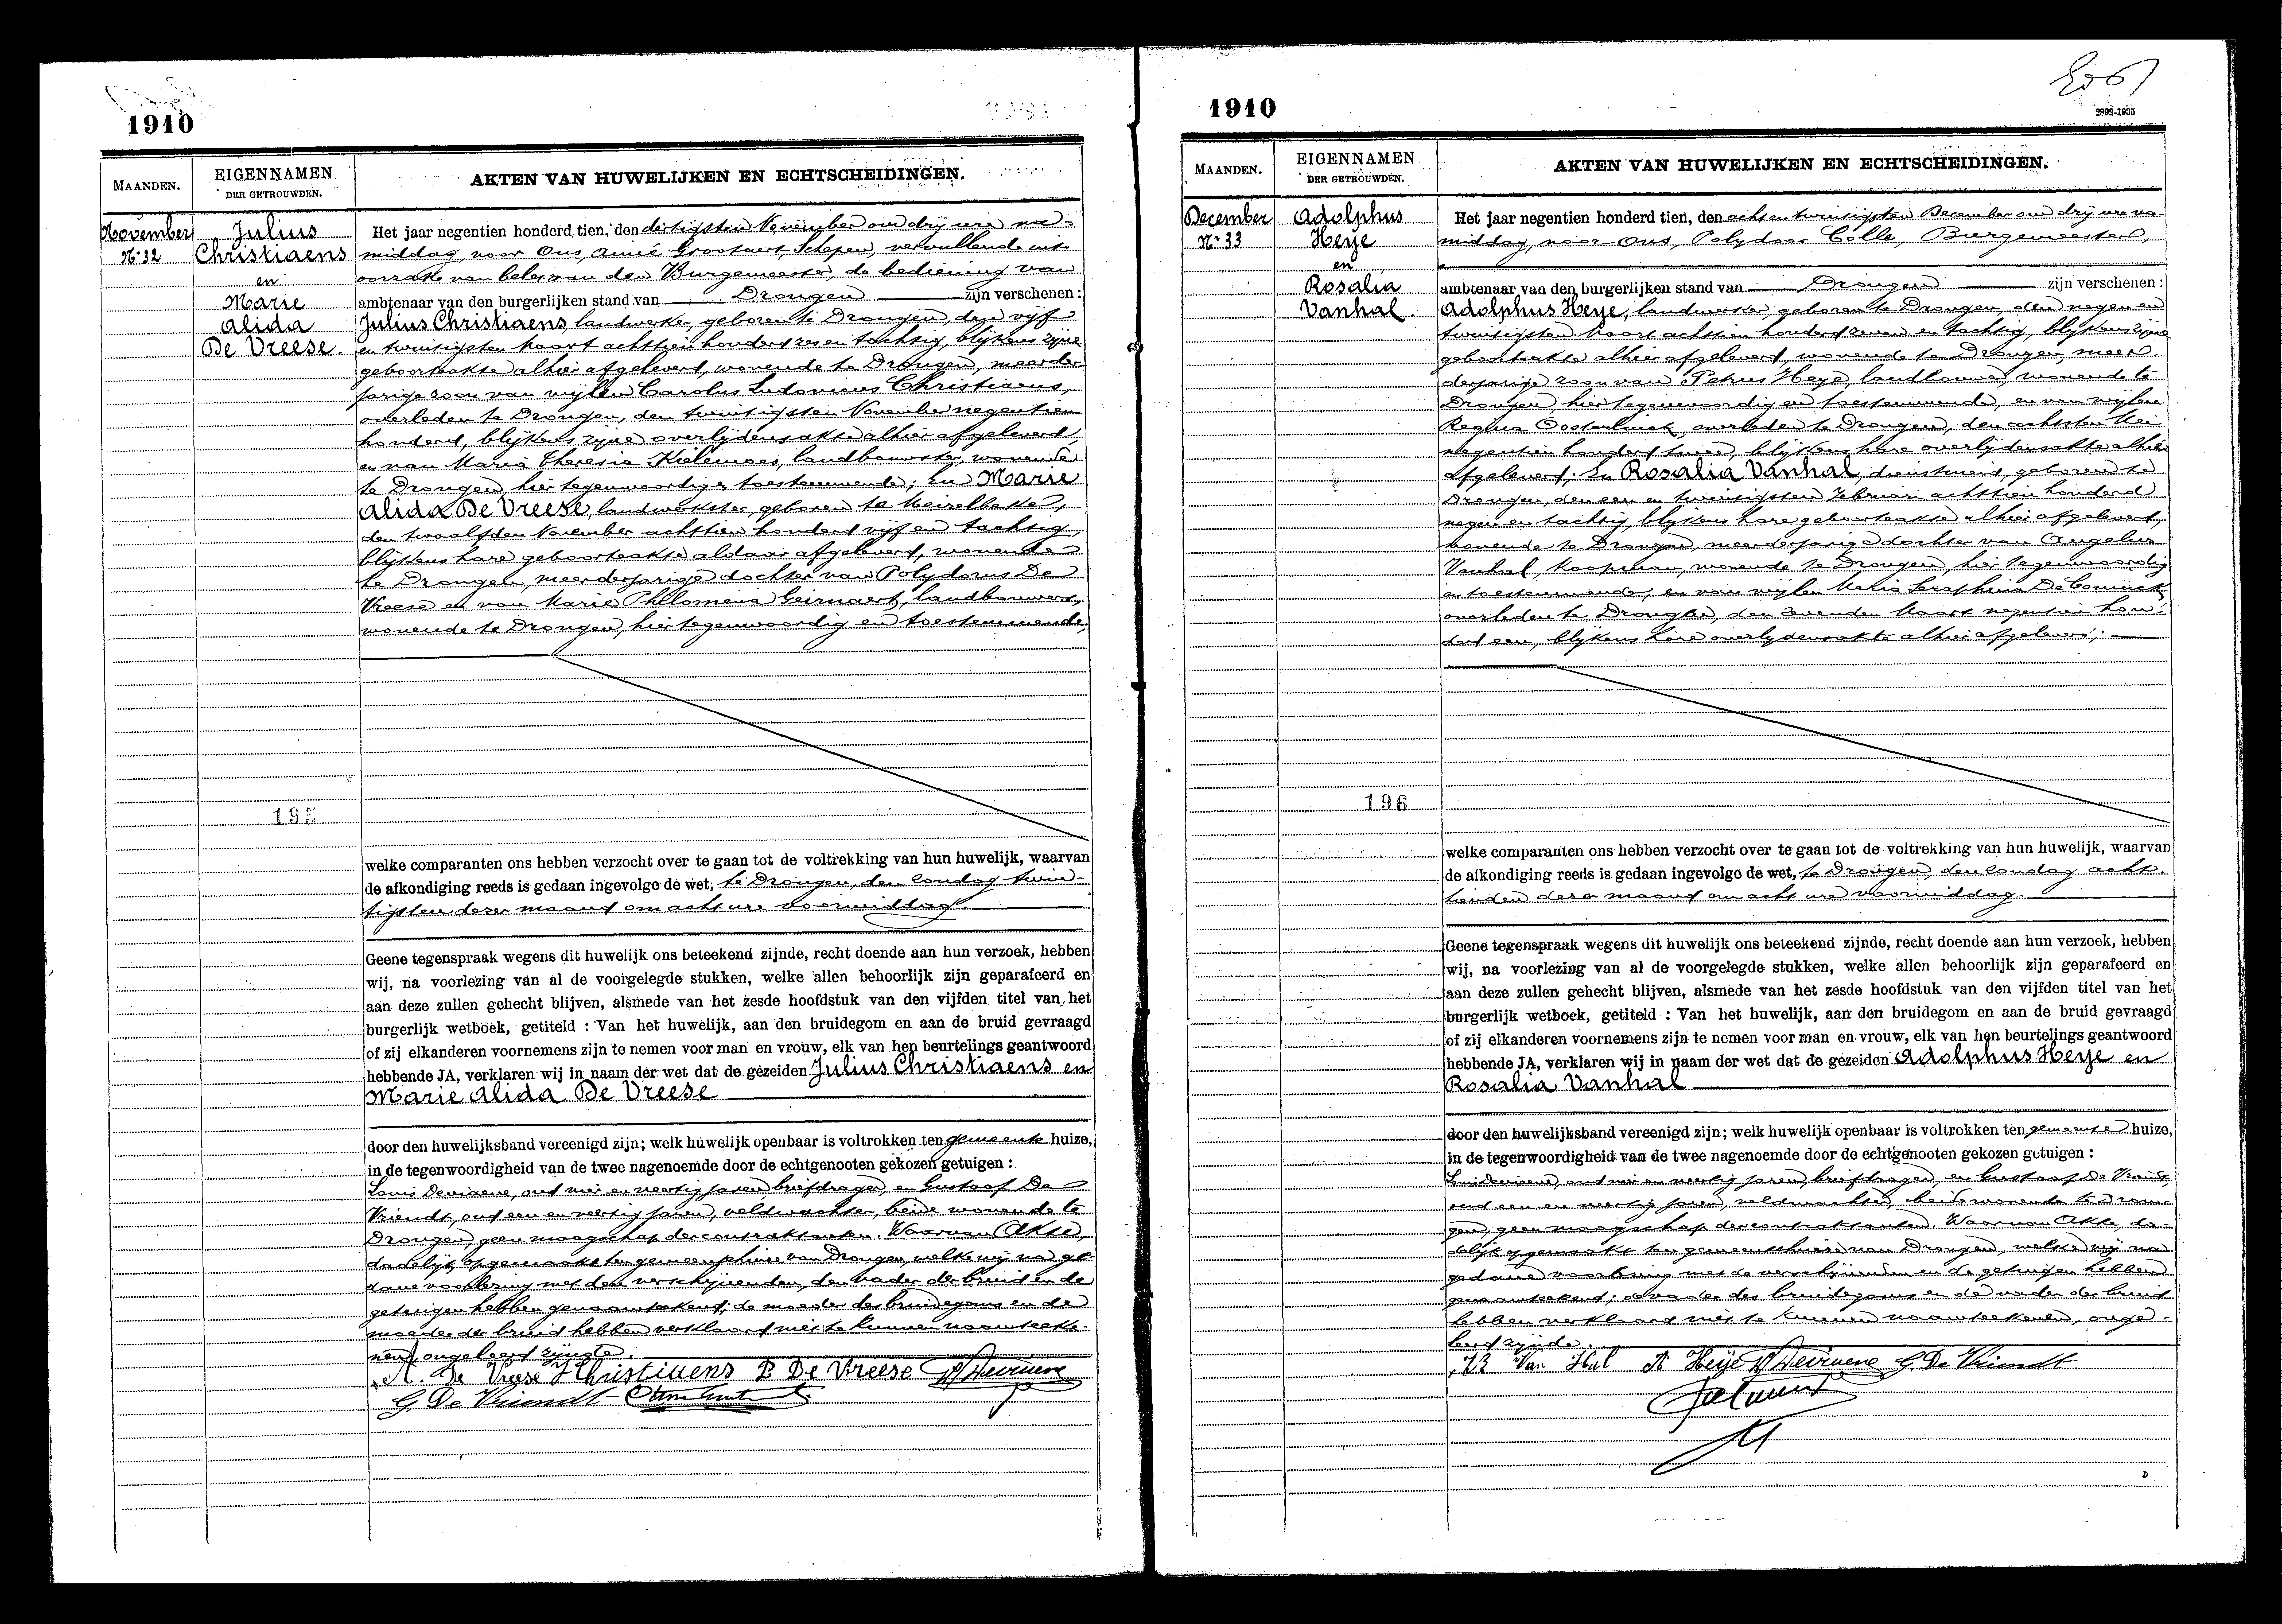 1910
MAANDEN.
EIGENNAMEN
DER GETROUWDEN.
AKTEN VAN HUWELIJKEN EN ECHTSCHEIDINGEN.
November
No 32
Julius
Christiaens
en
Marie
Alida
De Vreese.
Het jaar negentien honderd tien, den dertigsten November om drij ure na-
middag, voor Ons, Aimé Grootaert, Schepen, vervullende uit
oorzake van belet van den Burgemeester, de bediening van
ambtenaar van den burgerlijken stand van Drongen zijn verschenen:
Julius Christiaens, landwerker, geboren te Drongen, den vijf
en twintigsten Maart achttien honderd zes en tachtig, blijkens zijne
geboorteakte alhier afgeleverd, wonende te Drongen, meerder-
jarige zoon van wijlen Carolus Ludovicus Christiaens,
overleden te Drongen, den twintigsten November negentien
honderd, blijkens zijne overlijdensakte alhier afgeleverd,
en van Maria Theresia Kielemoes, landbouwster, wonende
te Drongen, hier tegenwoordig en toestemmende; En Marie
Alida De Vreese, landwerkster, geboren te Meirelbeke,
den twaalfden November achttien honderd vijf en tachtig,
blijkens hare geboorteakte aldaar afgeleverd, wonende
te Drongen, meerderjarige dochter van Polydorus De
Vreese en van Marie Philomena Geirnaert, landbouwers,
wonende te Drongen, hier tegenwoordig en toestemmende;
195
welke comparanten ons hebben verzocht over te gaan tot de voltrekking van hun huwelijk, waarvan
de afkondiging reeds is gedaan ingevolge de wet, te Drongen, den zondag twin-
tigsten dezer maand om acht ure voormiddag.
Geene tegenspraak wegens dit huwelijk ons beteekend zijnde, recht doende aan hun verzoek, hebben
wij, na voorlezing van al de voorgelegde stukken, welke allen behoorlijk zijn geparafeerd en
aan deze zullen gehecht blijven, alsmede van het zesde hoofdstuk van den vijfden titel van het
burgerlijk wetboek, getiteld : Van het huwelijk, aan den bruidegom en aan de bruid gevraagd
of zij elkanderen voornemens zijn te nemen voor man en vrouw, elk van hen beurtelings geantwoord
hebbende JA, verklaren wij in naam der wet dat de gezeiden Julius Christiaens en
Marie Alida De Vreese
door den huwelijksband vereenigd zijn; welk huwelijk openbaar is voltrokken ten gemeente huize,
in de tegenwoordigheid van de twee nagenoemde door de echtgenooten gekozen getuigen :
Louis Deviaene, oud en veertig jaren, briefdrager, en Gustaaf De
Vriendt, oud een en veertig jaren, veldwachter, beide wonende te
Drongen, geen maagschap der contraktanten. Waarvan Akte,
dadelijk opgemaakt ten gemeentehuize van Drongen, welke wij na ge-
dane voorlezing met den verschijnenden, den vader der bruid en de
getuigen hebben genaamteekend; de moeder des bruidegoms en de
moeder der bruid hebben verklaard niet te kunnen naamteeke-
nen, ongeleerd zijnde.
A. De Vreese J Christiaens P De Vreese
G. De Vriendt
1910
2892-1935
MAANDEN.
EIGENNAMEN
DER GETROUWDEN.
AKTEN VAN HUWELIJKEN EN ECHTSCHEIDINGEN.
December
No 33
Adolphus
Heye
en
Rosalia
Vanhal.
Het jaar negentien honderd tien, den acht en twintigsten December om drij ure na-
middag, voor Ons, Polydoor Colle, Burgemeester,
ambtenaar van den burgerlijken stand van Drongen zijn verschenen:
Adolphus Heye, landwerker, geboren te Drongen, den negen en
twintigsten Maart achttien honderd zeven en tachtig, blijkens zijne
geboorteakte alhier afgeleverd, wonende te Drongen, meer-
derjarige zoon van Petrus Heye, landbouwer, wonende te
Drongen, hier tegenwoordig en toestemmende, en van wijlen
Regina Oosterlinck, overleden te Drongen, den achtsten Mei
negentien honderd twee, blijkens hare overlijdensakte alhier
afgeleverd; En Rosalia Vanhal, dienstmeid, geboren te
Drongen, den een en twintigsten Februari achttien honderd
negen en tachtig, blijkens hare geboorteakte alhier afgeleverd,
wonende te Drongen, meerderjarige dochter van Angelus
Vanhal, koopman, wonende te Drongen, hier tegenwoordig
en toestemmende, en van wijlen Maria Seraphina De Coninck
overleden te Drongen, den zevenden Maart negentien hon-
derd een, blijkens hare overlijdensakte alhier afgeleverd;
196
welke comparanten ons hebben verzocht over te gaan tot de voltrekking van hun huwelijk, waarvan
de afkondiging reeds is gedaan ingevolge de wet, te Drongen, den zondag acht-
tienden dezer maand om acht ure voormiddag.
Geene tegenspraak wegens dit huwelijk ons beteekend zijnde, recht doende aan hun verzoek, hebben
wij, na voorlezing van al de voorgelegde stukken, welke allen behoorlijk zijn geparafeerd en
aan deze zullen gehecht blijven, alsmede van het zesde hoofdstuk van den vijfden titel van het
burgerlijk wetboek, getiteld : Van het huwelijk, aan den bruidegom en aan de bruid gevraagd
of zij elkanderen voornemens zijn te nemen voor man en vrouw, elk van hen beurtelings geantwoord
hebbende JA, verklaren wij in naam der wet dat de gezeiden Adolphus Heye en
Rosalia Vanhal
door den huwelijksband vereenigd zijn; welk huwelijk openbaar is voltrokken ten gemeente huize,
in de tegenwoordigheid van de twee nagenoemde door de echtgenooten gekozen getuigen :
Louis Deviaene, oud en veertig jaren, briefdrager, en Gustaaf De Vriendt,
oud een en veertig jaren, veldwachter, beide wonende te Dron-
gen, geen maagschap der contraktanten. Waarvan Akte, da-
delijk opgemaakt ten gemeentehuize van Drongen, welke wij na
gedane voorlezing met de verschijnenden en de getuigen hebben
genaamteekend; de vader des bruidegoms en de vader der bruid
hebben verklaard niet te kunnen naamteekenen, onge-
leerd zijnde.
Van Hal A Heije G. De Vriendt